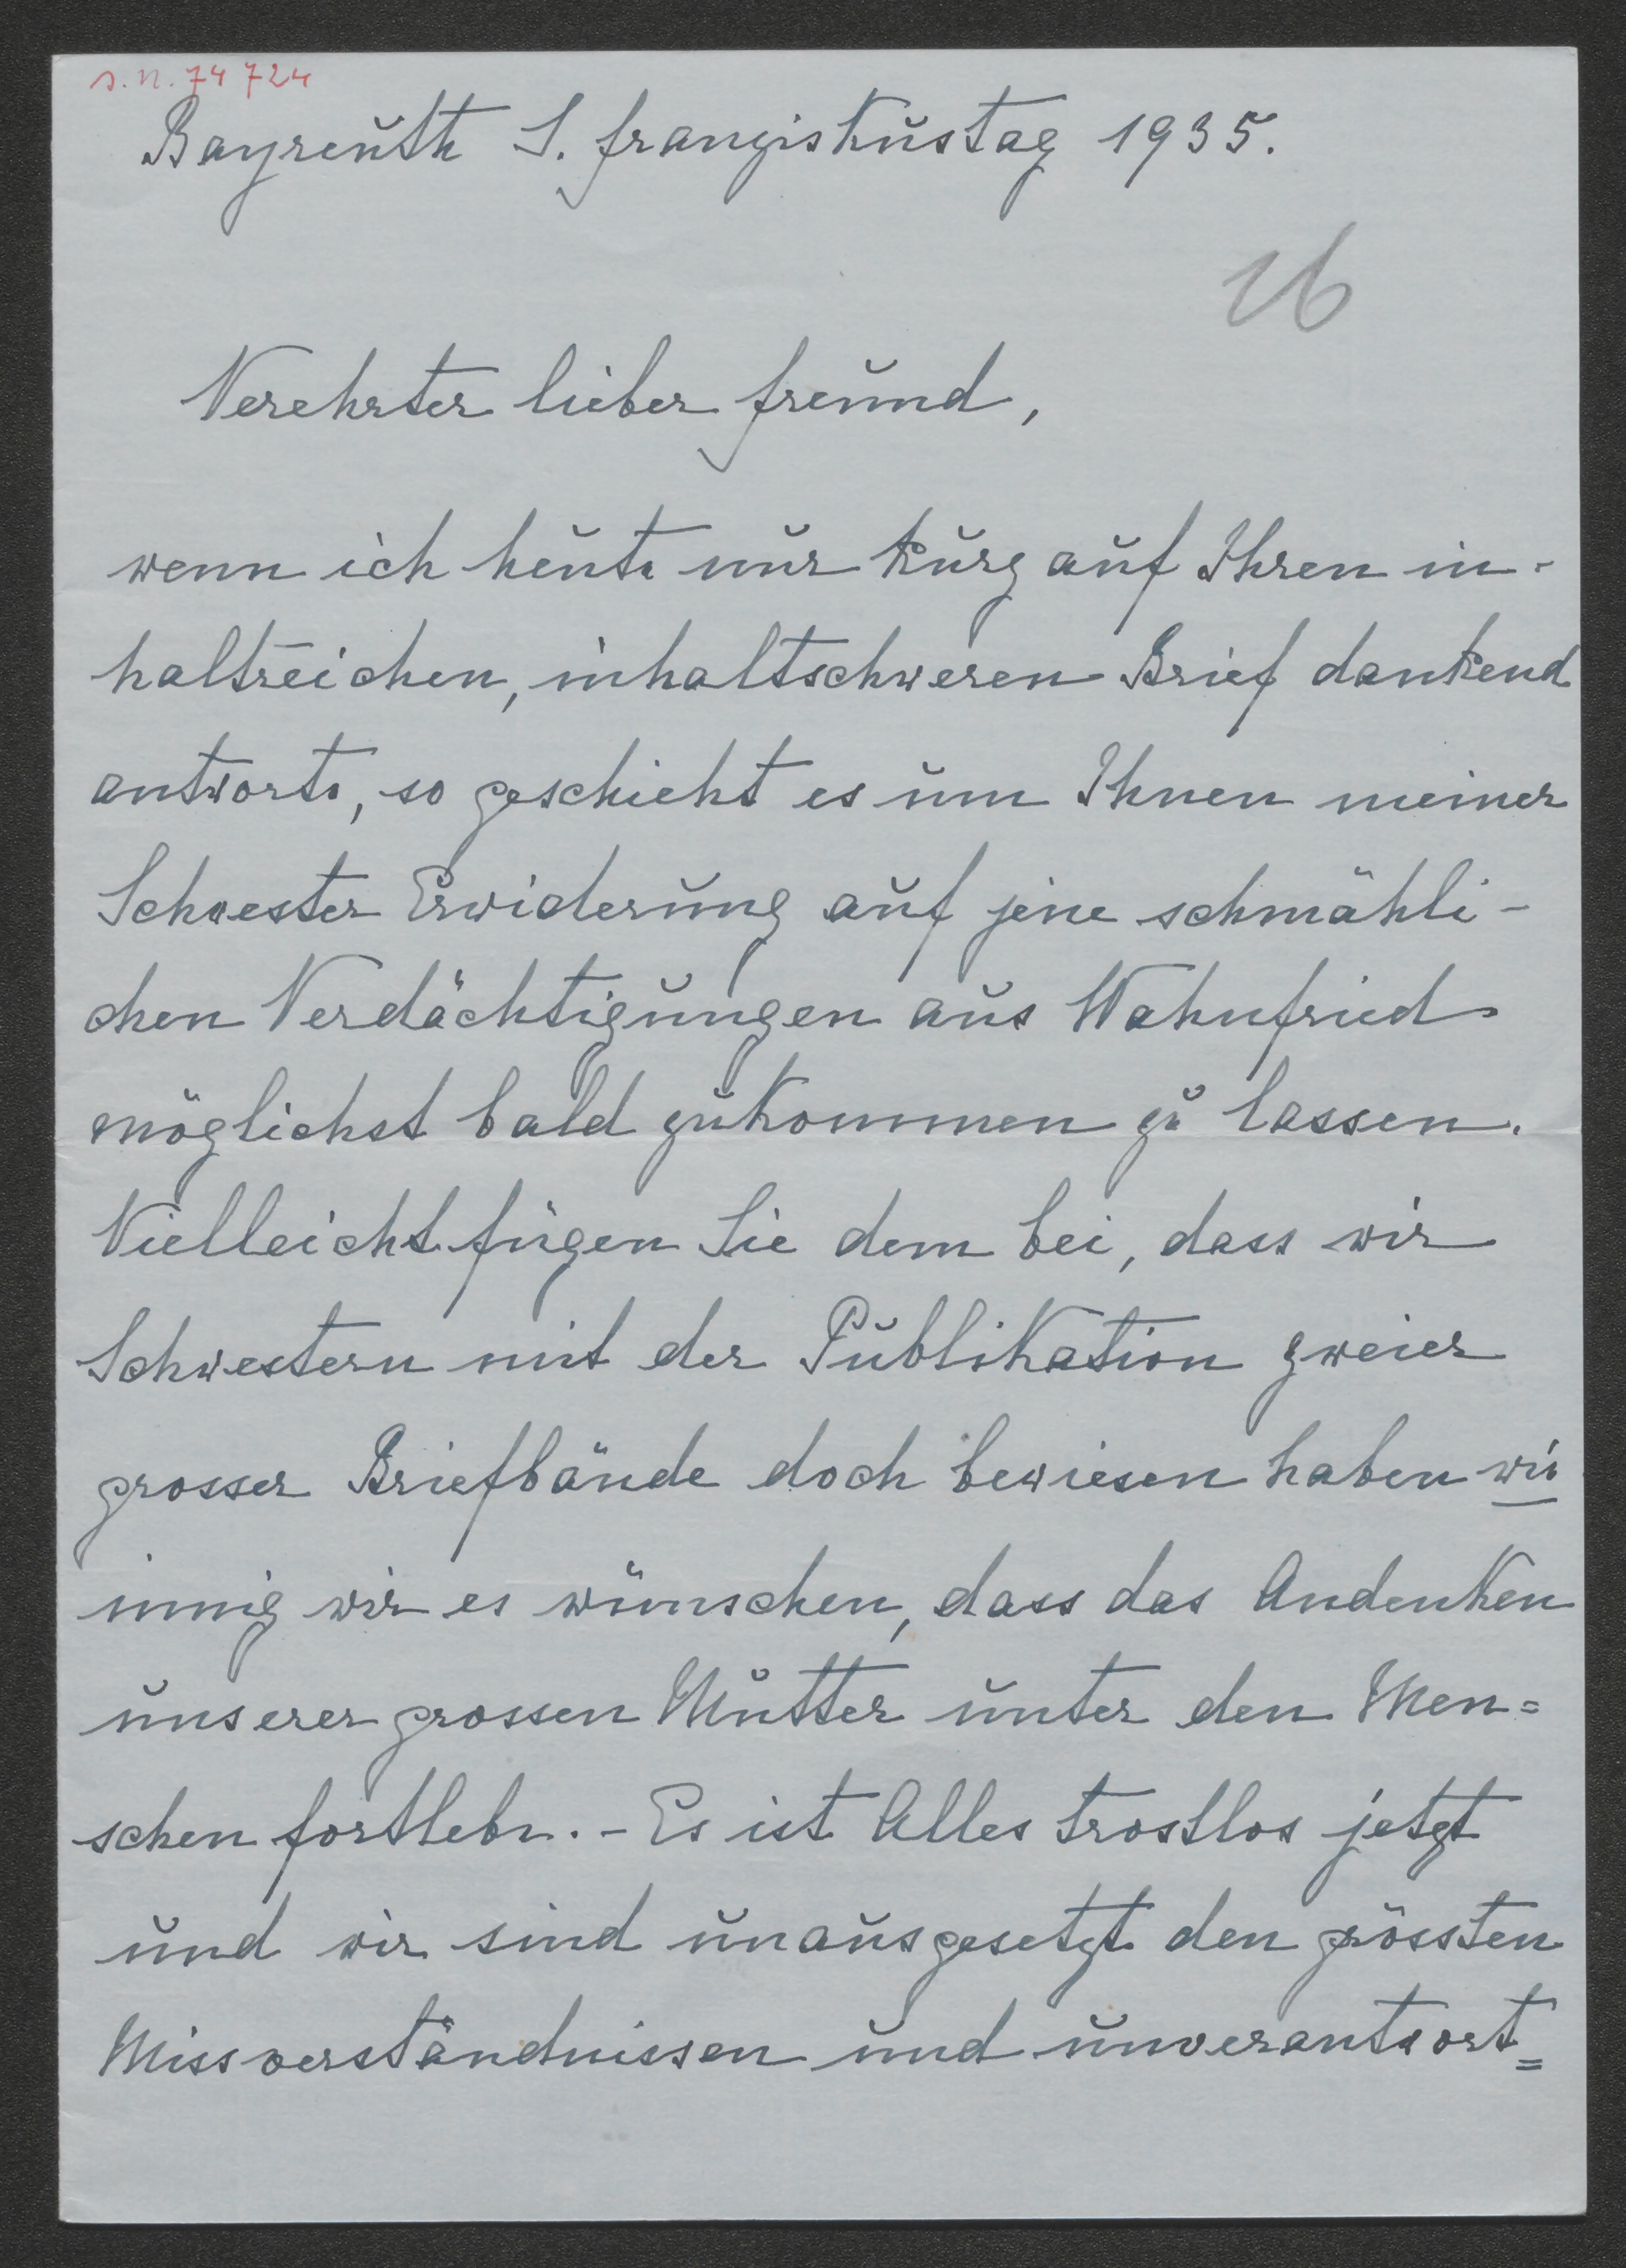 s. n. 74 724
Bayreuth S. Franziskustag 1935.
16
Verehrter lieber Freund,
wenn ich heute nur kurz auf Ihren in-
haltreichen, inhaltschweren Brief dankend
antworte, so geschieht es um Ihnen meiner
Schwester Erwiderung auf jene schmähli-
chen Verdächtigungen aus Wahnfried
möglichst bald zukommen zu lassen.
Vielleicht fügen Sie dem bei, dass wir
Schwestern mit der Publikation zweier
grosser Briefbände doch bewiesen haben wie
innig wir es wünschen, dass das Andenken
unserer grossen Mutter unter den Men=
schen fortlebe. - Es ist Alles trostlos jetzt
und wir sind unausgesetzt den grössten
Missverständnissen und unverantwort=